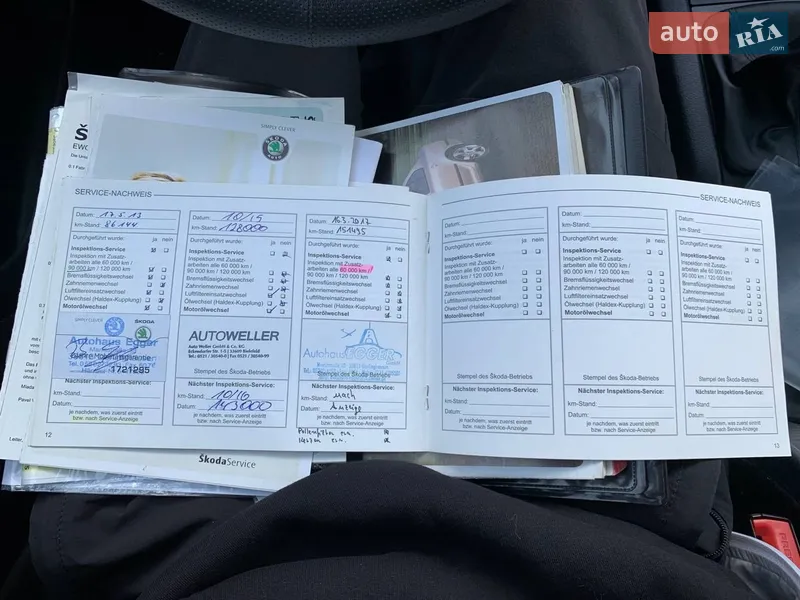 auto RIA .com
SIMPLY CLEVER
SERVICE-NACHWEIS
Datum: 17.5.13
km-Stand: 86144
Durchgeführt wurde: ja nein
Inspektions-Service
Inspektion mit Zusatz-
arbeiten alle 60 000 km /
90 000 km / 120 000 km
Bremsflüssigkeitswechsel
Zahnriemenwechsel
Luftfiltereinsatzwechsel
Ölwechsel (Haldex-Kupplung)
Motorölwechsel
SKODA
Autohaus Egger
1721285
Nächster Inspektions-Service:
km-Stand:
Datum:
je nachdem, was zuerst eintritt
bzw. nach Service-Anzeige
12
Datum: 10/15
km-Stand: 128000
Durchgeführt wurde: ja nein
Inspektions-Service
Inspektion mit Zusatz-
arbeiten alle 60 000 km /
90 000 km / 120 000 km
Bremsflüssigkeitswechsel
Zahnriemenwechsel
Luftfiltereinsatzwechsel
Ölwechsel (Haldex-Kupplung)
Motorölwechsel
AUTOWELLER
Auto Weller GmbH & Co. KG
Stempel des Škoda-Betriebs
Nächster Inspektions-Service:
km-Stand: 10/16
Datum: 143000
je nachdem, was zuerst eintritt
bzw. nach Service-Anzeige
Datum: 16.3.2017
km-Stand: 151435
Durchgeführt wurde: ja nein
Inspektions-Service
Inspektion mit Zusatz-
arbeiten alle 60 000 km /
90 000 km / 120 000 km
Bremsflüssigkeitswechsel
Zahnriemenwechsel
Luftfiltereinsatzwechsel
Ölwechsel (Haldex-Kupplung)
Motorölwechsel
Autohaus EGGER
Stempel des Škoda-Betriebs
Nächster Inspektions-Service:
km-Stand: nach
Datum: Anzeige
je nachdem, was zuerst eintritt
bzw. nach Service-Anzeige
SERVICE-NACHWEIS
Datum:
km-Stand:
Durchgeführt wurde: ja nein
Inspektions-Service
Inspektion mit Zusatz-
arbeiten alle 60 000 km /
90 000 km / 120 000 km
Bremsflüssigkeitswechsel
Zahnriemenwechsel
Luftfiltereinsatzwechsel
Ölwechsel (Haldex-Kupplung)
Motorölwechsel
Stempel des Škoda-Betriebs
Nächster Inspektions-Service:
km-Stand:
Datum:
je nachdem, was zuerst eintritt
bzw. nach Service-Anzeige
Datum:
km-Stand:
Durchgeführt wurde: ja nein
Inspektions-Service
Inspektion mit Zusatz-
arbeiten alle 60 000 km /
90 000 km / 120 000 km
Bremsflüssigkeitswechsel
Zahnriemenwechsel
Luftfiltereinsatzwechsel
Ölwechsel (Haldex-Kupplung)
Motorölwechsel
Stempel des Škoda-Betriebs
Nächster Inspektions-Service:
km-Stand:
Datum:
je nachdem, was zuerst eintritt
bzw. nach Service-Anzeige
Datum:
km-Stand:
Durchgeführt wurde: ja nein
Inspektions-Service
Inspektion mit Zusatz-
arbeiten alle 60 000 km /
90 000 km / 120 000 km
Bremsflüssigkeitswechsel
Zahnriemenwechsel
Luftfiltereinsatzwechsel
Ölwechsel (Haldex-Kupplung)
Motorölwechsel
Stempel des Škoda-Betriebs
Nächster Inspektions-Service:
km-Stand:
Datum:
je nachdem, was zuerst eintritt
bzw. nach Service-Anzeige
13
ŠkodaService